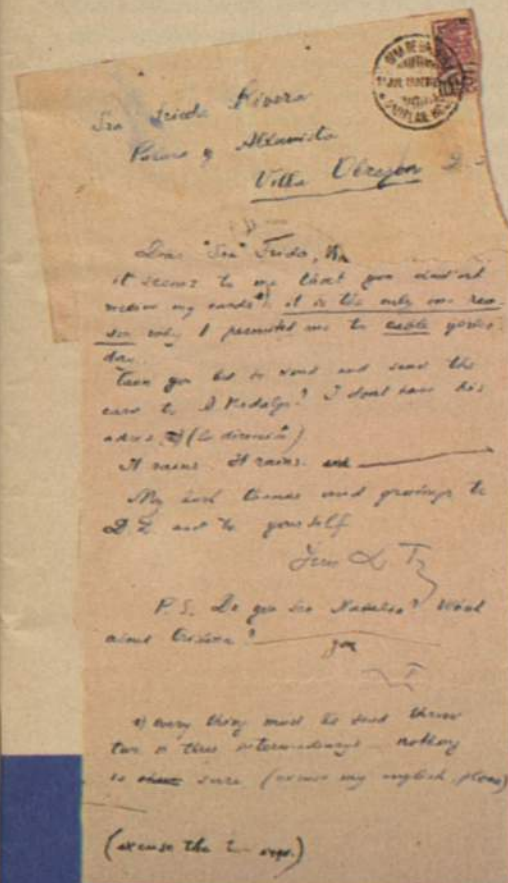 Sra Frieda Rivera
Palma y Altavista
Villa Obregon D.
Dear "Sra" Frida,
it seems to me that you didn't
receive my cards*) it is the only one rea-
son why I permitted me to cable yester-
day.
to read and send the
card to A Hidalgo? I dont have his
adres (la direccion)
It rains. It rains. and
My best and greetings to
D.R. and to yourself
Your L T
P.S. Do you see Natalia? What
about Cristina?
you
T
*) every thing must be send threw
two or three intermediarys - nothing
is sure (excuse my english, please)
(excuse the)